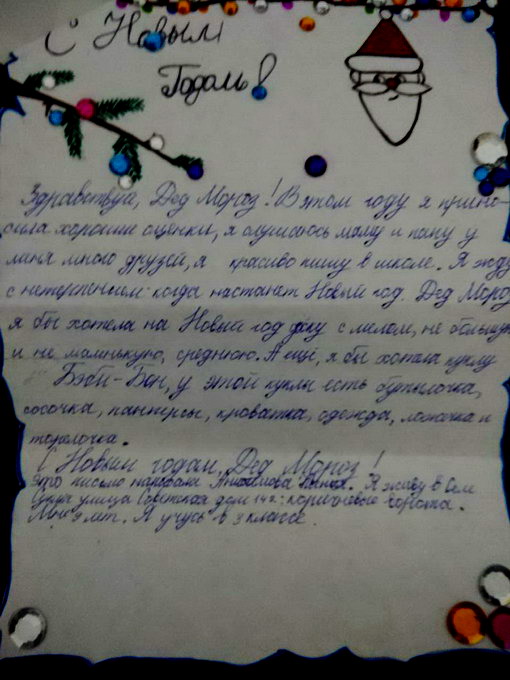 С Новым
Годом!
Здравствуй, Дед Мороз! В этом году я прино-
сила хорошие оценки, я слушаюсь маму и папу у
меня много друзей, я красиво пишу в школе. Я жду
с нетерпением когда настанет Новый год. Дед Мороз
я бы хотела на Новый год доску с мелом, не большую
и не маленькую, среднюю. А ещё, я бы хотела куклу
Бэби-Бон, у этой куклы есть бутылочка,
сосочка, панперсы, кроватка, одежда, ложечка и
торелочка.
С Новым годом, Дед Мороз!
Это письмо написала Я живу в
улица Советская дом коричневые ворота.
Мне 9 лет. Я учусь в 3 классе.